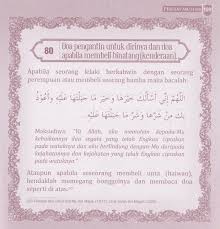 80
Doa pengantin untuk dirinya dan doa
apabila membeli binatang(kenderaan)
Apabila seorang lelaki berkahwin dengan seorang
perempuan atau membeli seorang hamba maka bacalah:
اللَّهُمَّ إِنِّي أَسْأَلُكَ خَيْرَهَا وَخَيْرَ مَا جَبَلْتَهَا عَلَيْهِ وَأَعُوذُ بِكَ
مِنْ شَرِّهَا وَشَرِّ مَا جَبَلْتَهَا عَلَيْهِ
Maksudnya: Ya Allah, aku memohon kepada-Mu
kebaikannya dan kebaikan yang telah Engkau ciptakan
pada wataknya. Dan aku berlindung kepada-Mu dari
kejahatannya dan kejahatan yang telah Engkau ciptakan
pada wataknya
Ataupun apabila seseorang membeli unta (haiwan),
hendaklah memegang bonggolnya dan membaca doa
seperti di atas